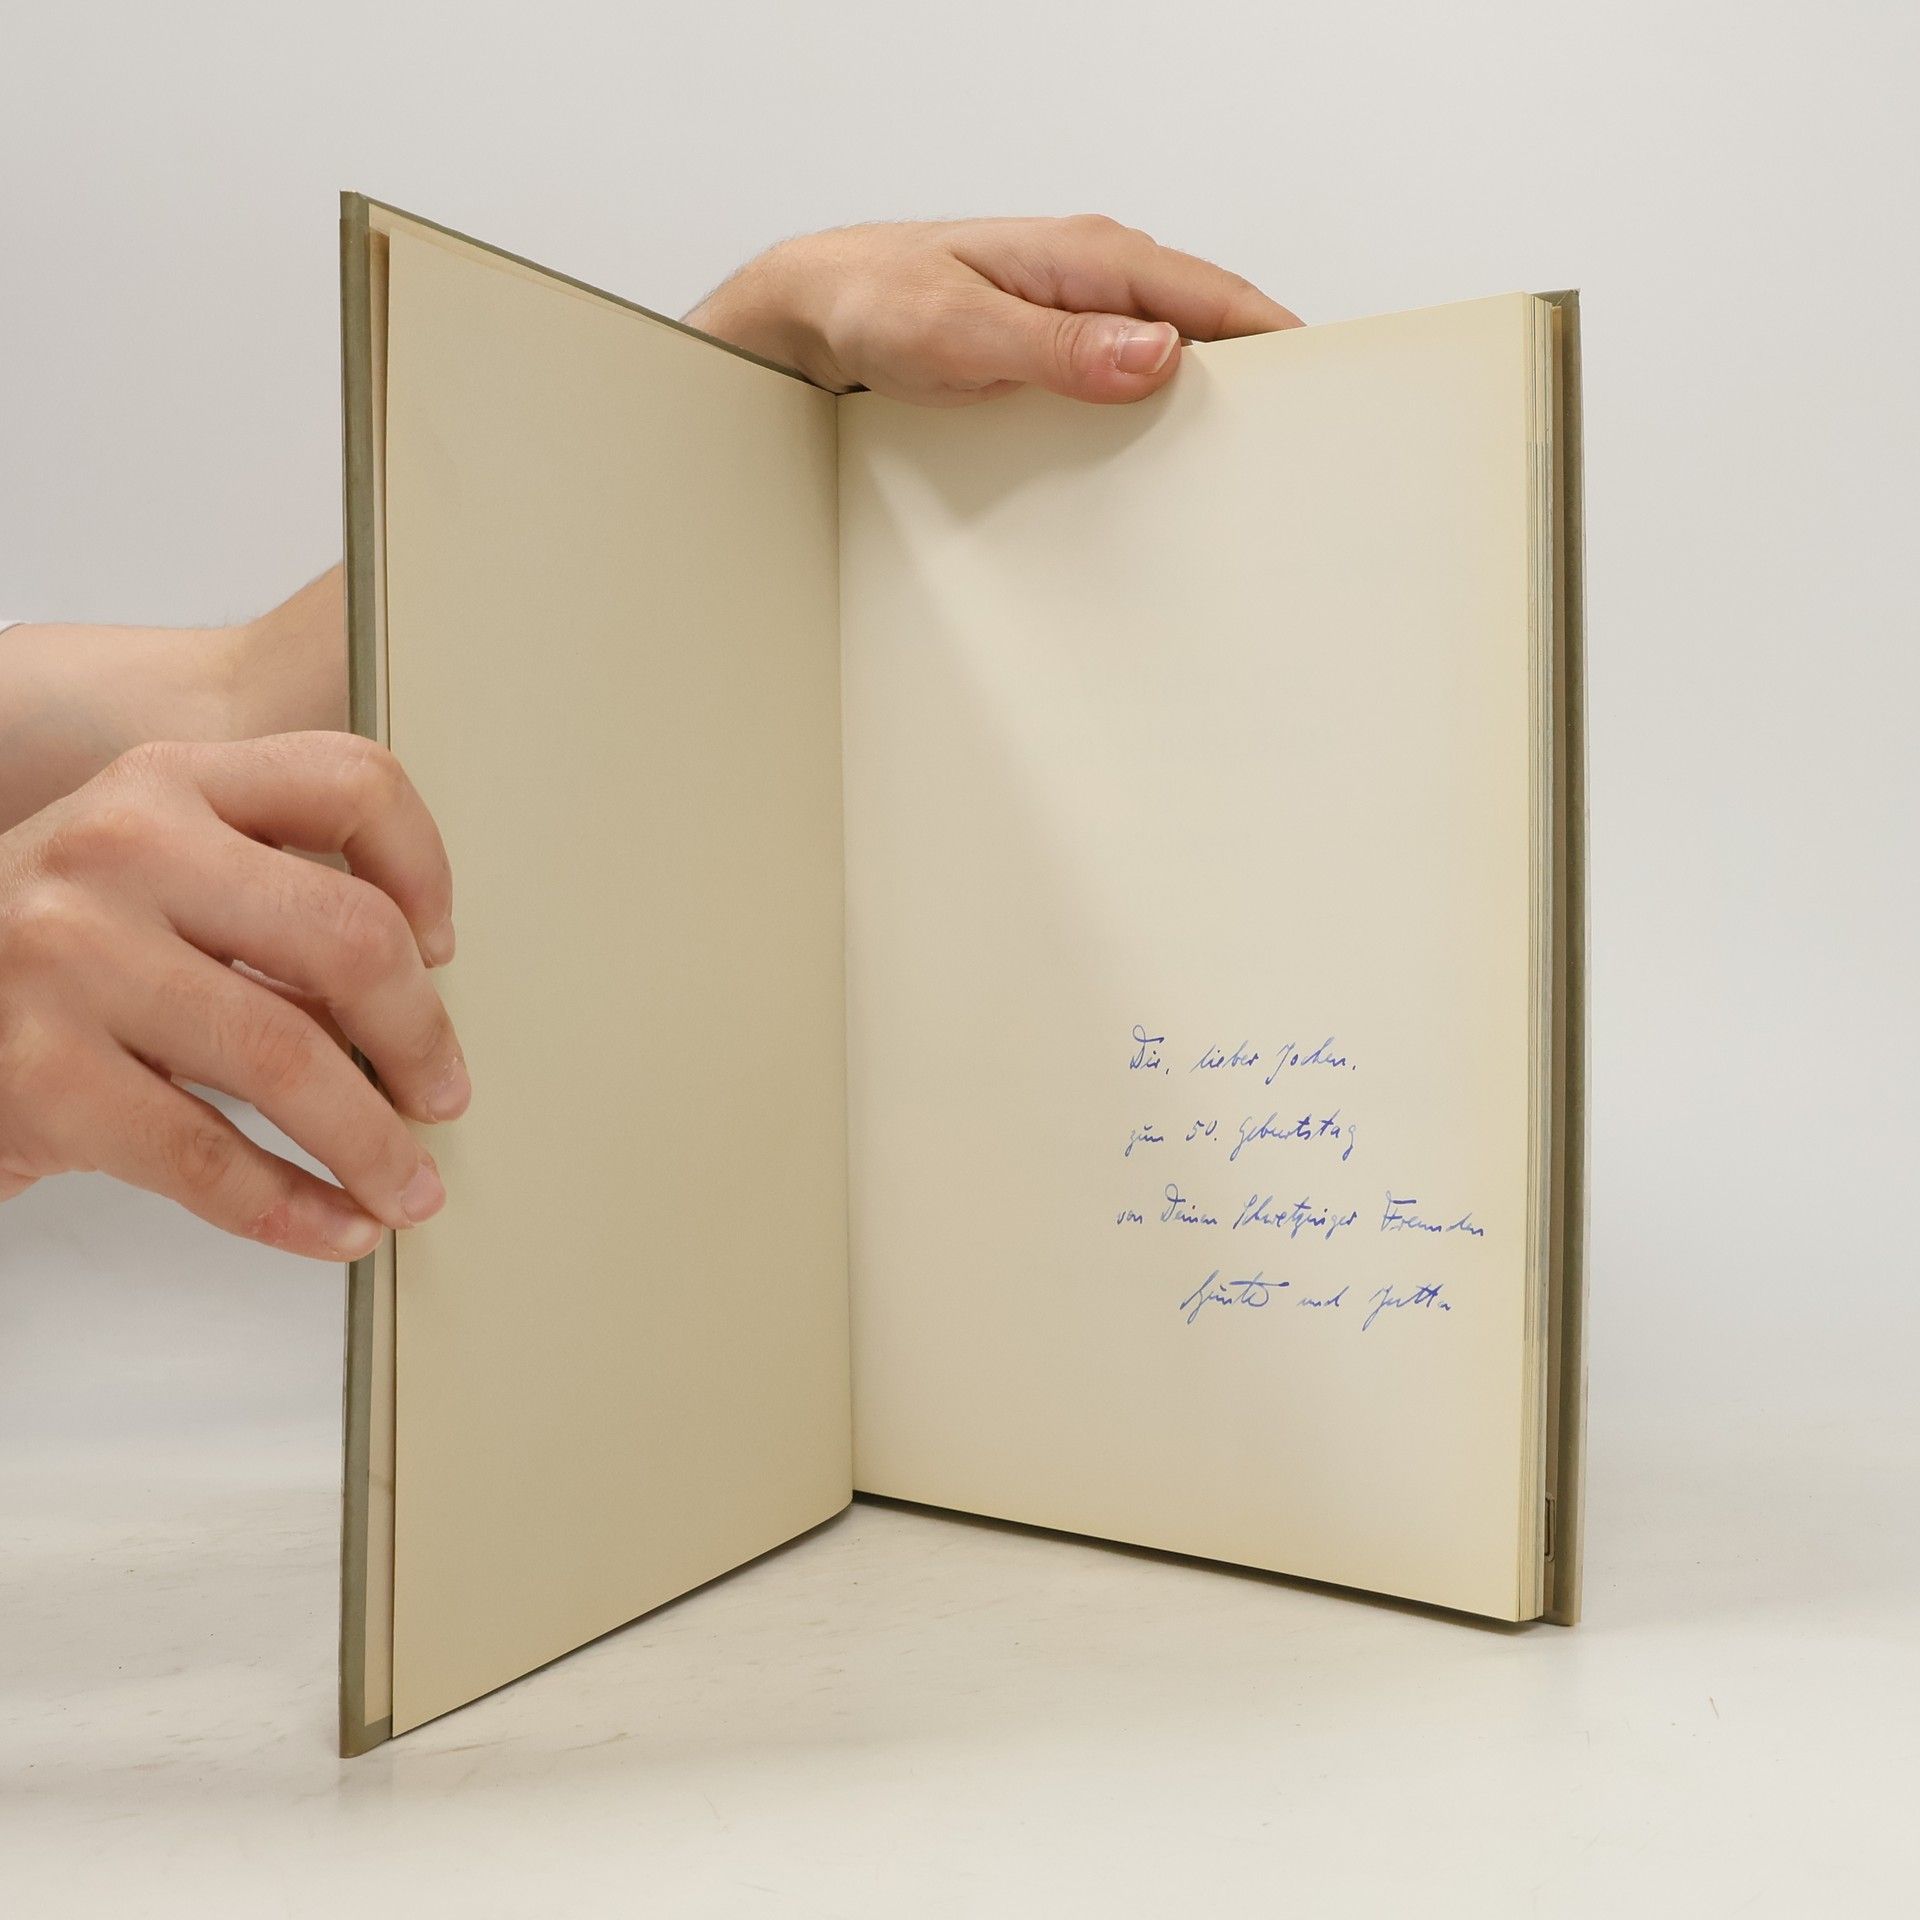 Dir, lieber Jochen,
zum 50. Geburtstag
von Deinen Schwetzinger Freunden
Günter und Jutta